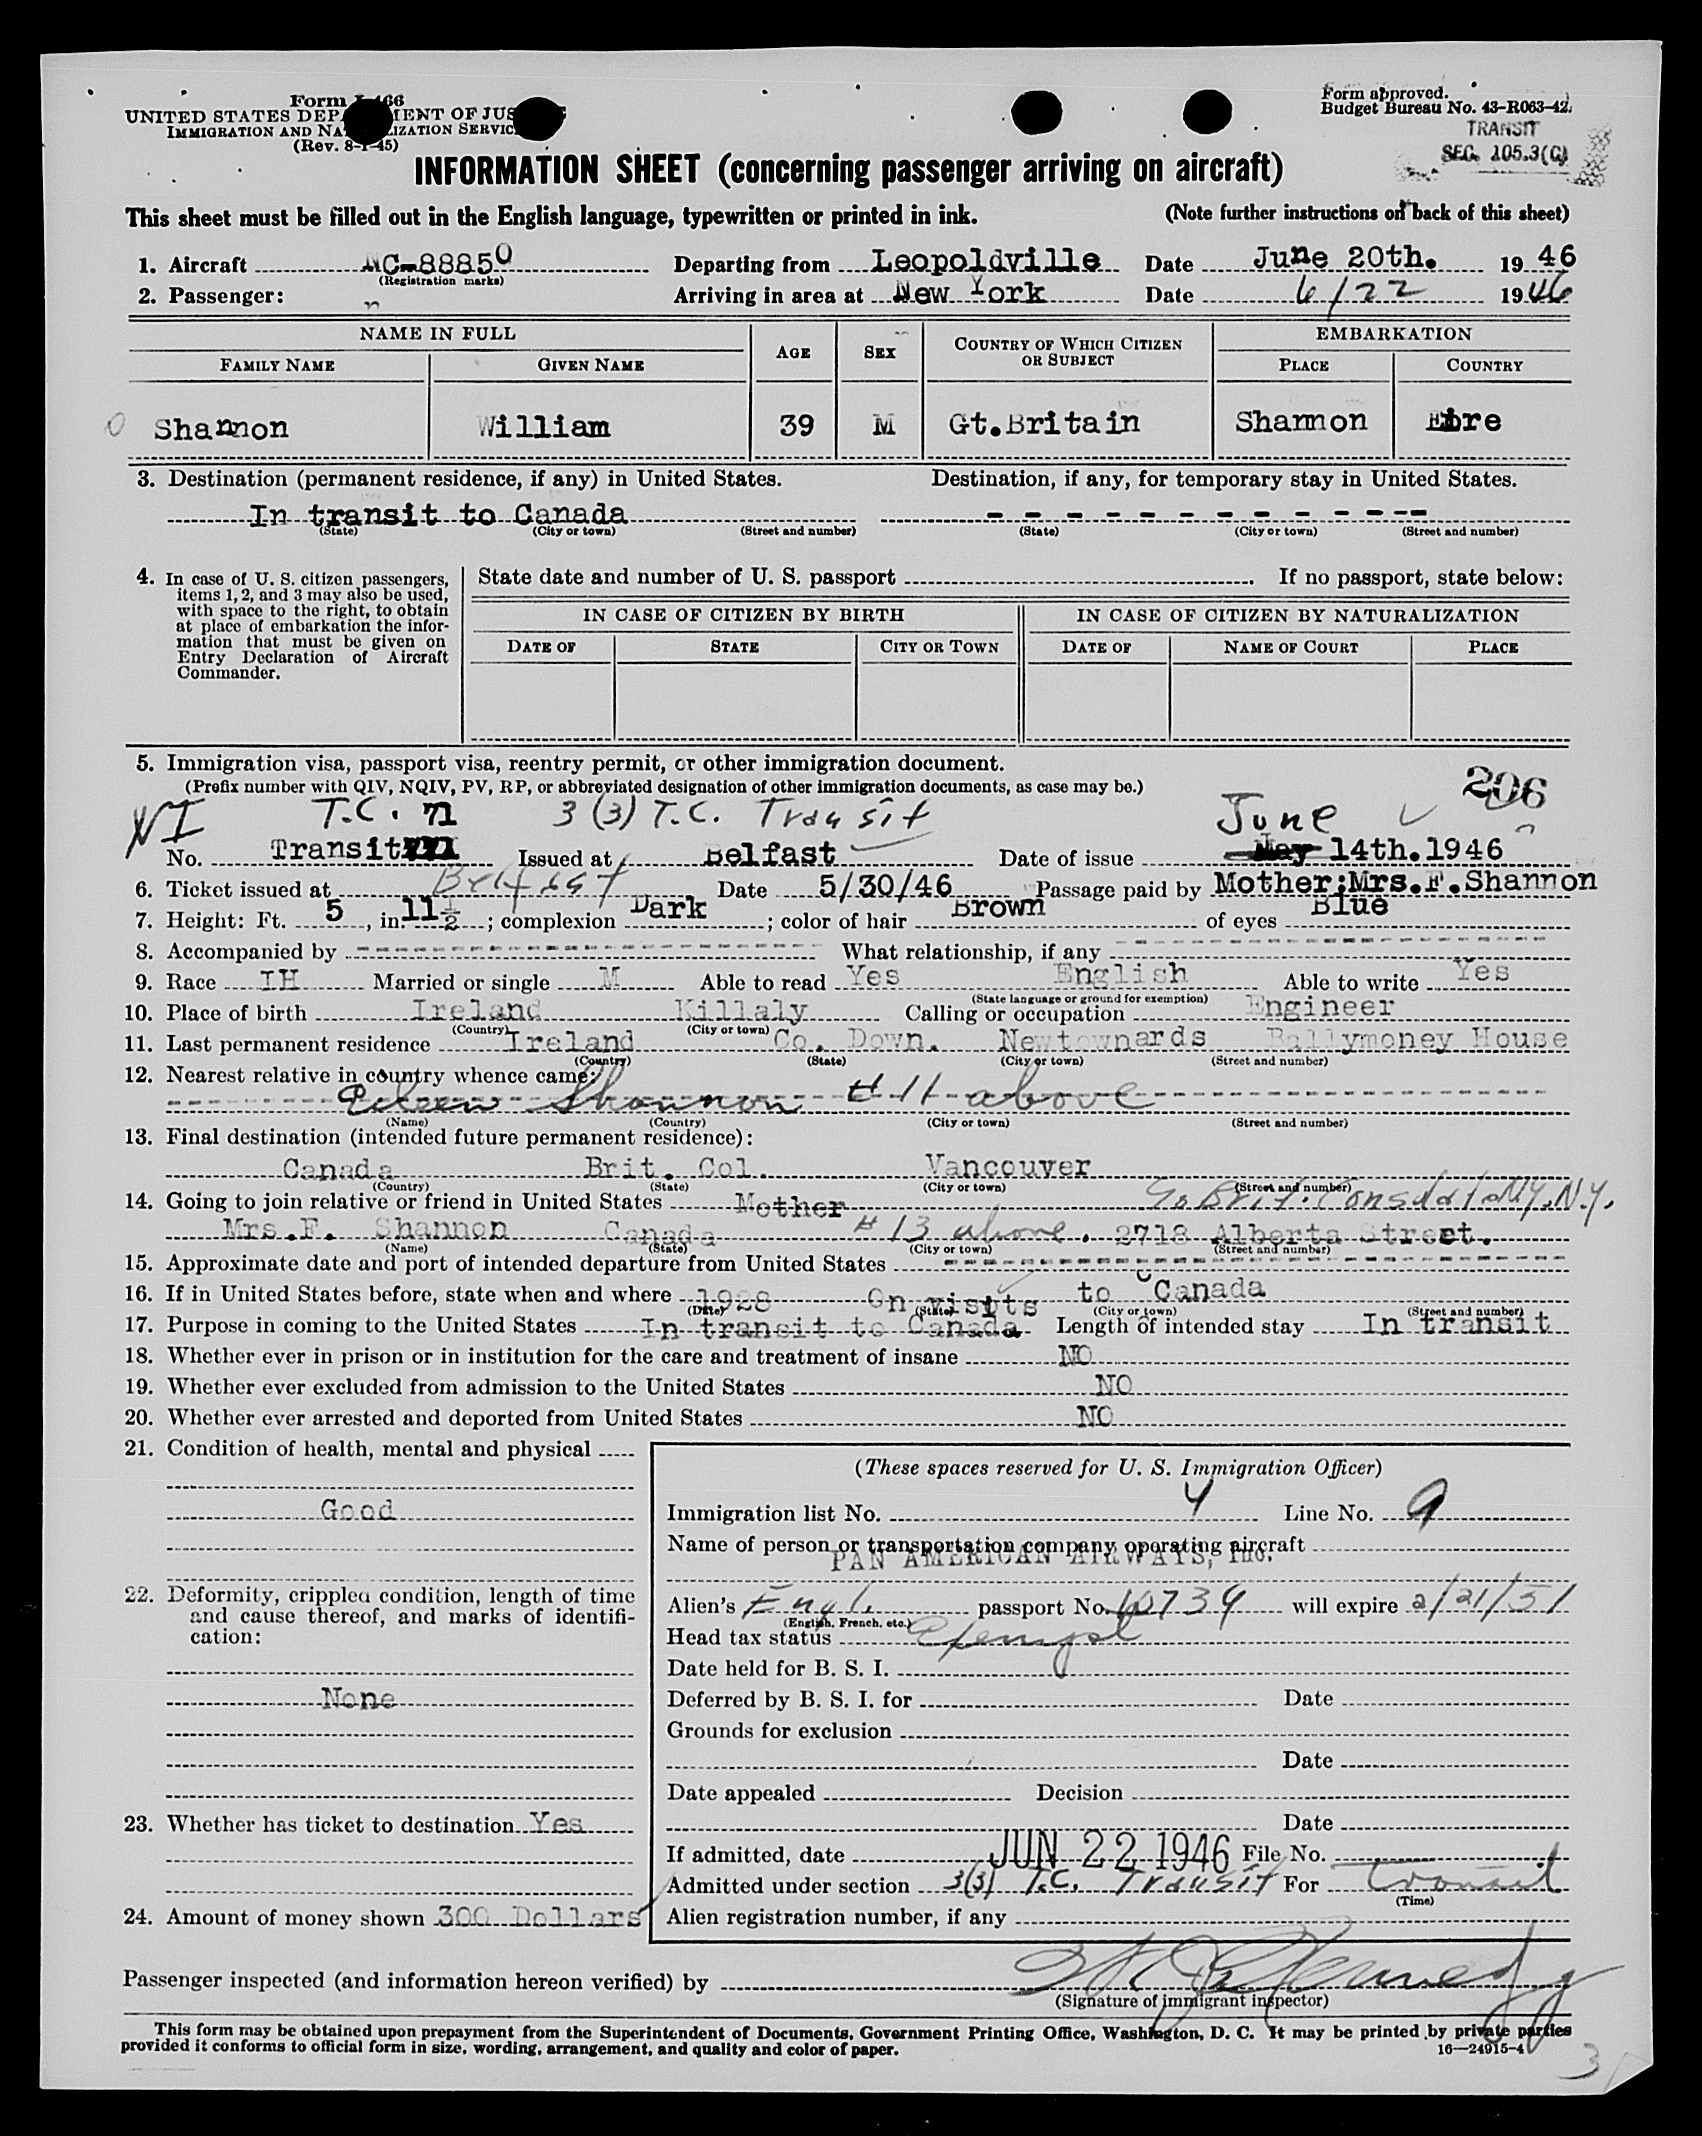 Form I-466
UNITED STATES DEPARTMENT OF JUSTICE
IMMIGRATION AND NATURALIZATION SERVICE
(Rev. 8-1-45)
Form approved.
Budget Bureau No. 43-R063-42.
TRANSIT
SEC. 105.3(C)
INFORMATION SHEET (concerning passenger arriving on aircraft)
This sheet must be filled out in the English language, typewritten or printed in ink. (Note further instructions on back of this sheet)
1. Aircraft NC-88850 Departing from Leopoldville Date June 20th. 1946
(Registration marks)
2. Passenger: Arriving in area at New York Date 6/22 1946
NAME IN FULL AGE SEX COUNTRY OF WHICH CITIZEN OR SUBJECT EMBARKATION
FAMILY NAME GIVEN NAME PLACE COUNTRY
Shannon William 39 M Gt.Britain Shannon Eire
3. Destination (permanent residence, if any) in United States. Destination, if any, for temporary stay in United States.
In transit to Canada - - - - - - - - - - - -
(State) (City or town) (Street and number) (State) (City or town) (Street and number)
4. In case of U. S. citizen passengers, items 1, 2, and 3 may also be used, with space to the right, to obtain at place of embarkation the information that must be given on Entry Declaration of Aircraft Commander.
State date and number of U. S. passport If no passport, state below:
IN CASE OF CITIZEN BY BIRTH IN CASE OF CITIZEN BY NATURALIZATION
DATE OF STATE CITY OR TOWN DATE OF NAME OF COURT PLACE
5. Immigration visa, passport visa, reentry permit, or other immigration document.
(Prefix number with QIV, NQIV, PV, RP, or abbreviated designation of other immigration documents, as case may be.)
206
NI T.C. 71 3(3) T.C. Transit June
No. Transit Issued at Belfast Date of issue May 14th.1946
6. Ticket issued at Belfast Date 5/30/46 Passage paid by Mother;Mrs.F.Shannon
7. Height: Ft. 5, in. 11 1/2; complexion Dark; color of hair Brown of eyes Blue
8. Accompanied by - - - - What relationship, if any - - - -
9. Race IH Married or single M Able to read Yes English Able to write Yes
(State language or ground for exemption)
10. Place of birth Ireland Killaly Calling or occupation Engineer
(Country) (City or town)
11. Last permanent residence Ireland Co. Down. Newtownards Ballymoney House
(Country) (State) (City or town) (Street and number)
12. Nearest relative in country whence came:
Eileen Shannon # 11 above
(Name) (Country) (City or town) (Street and number)
13. Final destination (intended future permanent residence):
Canada Brit. Col. Vancouver
(Country) (State) (City or town) (Street and number)
14. Going to join relative or friend in United States Mother Go Brit. Consulate NY. N.Y.
Mrs.F. Shannon Canada # 13 above. 2718 Alberta Street.
(Name) (State) (City or town) (Street and number)
15. Approximate date and port of intended departure from United States - - - -
16. If in United States before, state when and where 1928 On visits to Canada
(Date) (State) (City or town) (Street and number)
17. Purpose in coming to the United States In transit to Canada Length of intended stay In transit
18. Whether ever in prison or in institution for the care and treatment of insane NO
19. Whether ever excluded from admission to the United States NO
20. Whether ever arrested and deported from United States NO
21. Condition of health, mental and physical
Good
22. Deformity, crippled condition, length of time and cause thereof, and marks of identification:
None
23. Whether has ticket to destination Yes
24. Amount of money shown 300 Dollars
(These spaces reserved for U. S. Immigration Officer)
Immigration list No. 4 Line No. 9
Name of person or transportation company operating aircraft
PAN AMERICAN AIRWAYS, Inc.
Alien's Engl. passport No. 10739 will expire 2/21/51
(English, French, etc.)
Head tax status Exempt
Date held for B. S. I.
Deferred by B. S. I. for Date
Grounds for exclusion
Date
Date appealed Decision
Date
If admitted, date JUN 22 1946 File No.
Admitted under section 3(3) T.C. Transit For Transit
(Time)
Alien registration number, if any
Passenger inspected (and information hereon verified) by
(Signature of immigrant inspector)
This form may be obtained upon prepayment from the Superintendent of Documents, Government Printing Office, Washington, D. C. It may be printed by private parties
provided it conforms to official form in size, wording, arrangement, and quality and color of paper. 16—24915-4
3